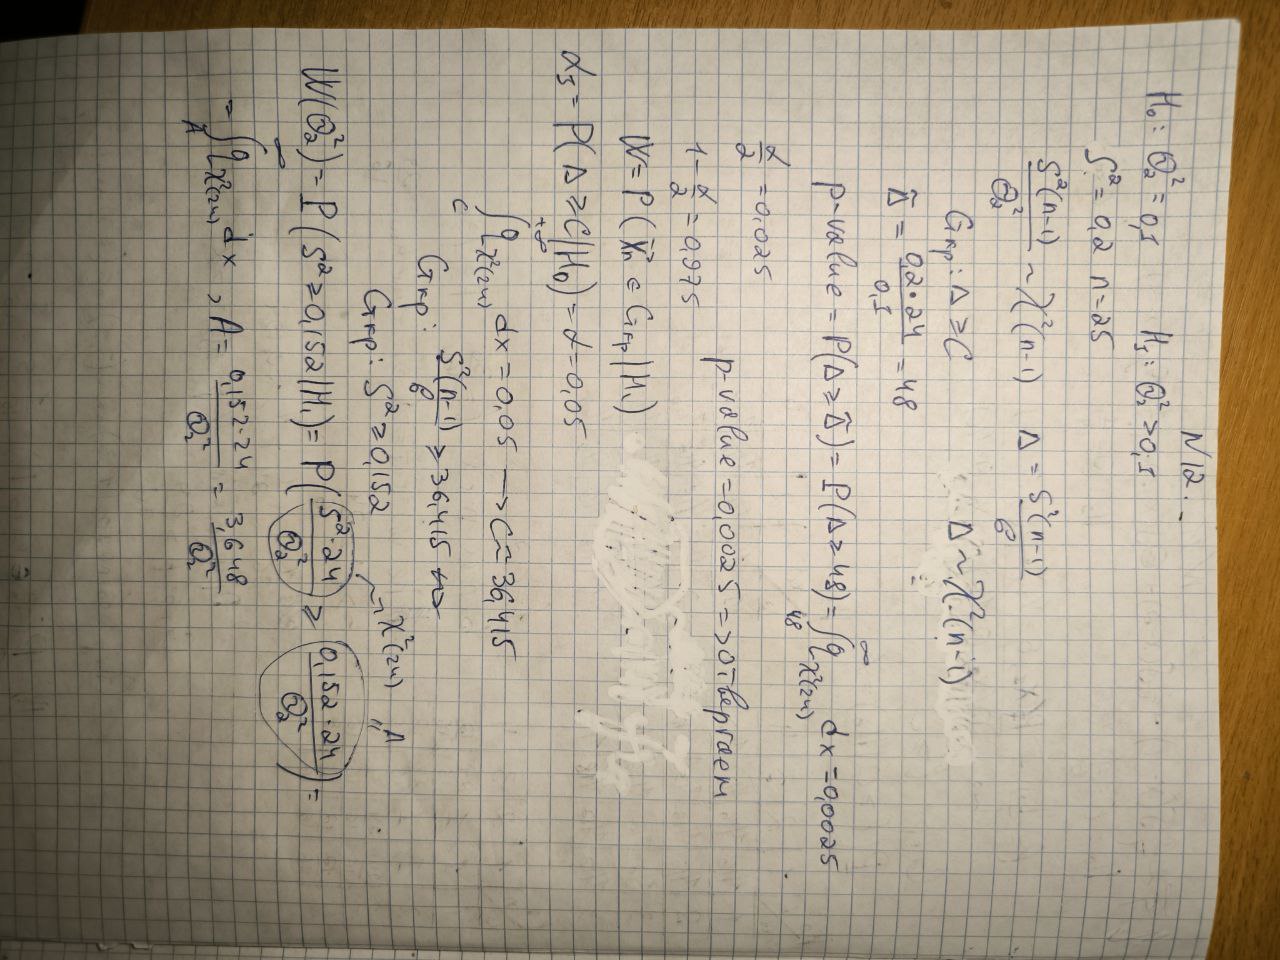 N12.
H₀: Θ₂² = 0,1   H₁: Θ₂² > 0,1
S² = 0,2  n = 25
S²(n-1)/Θ₂² ~ χ²(n-1)   Δ = S²(n-1)/б
Gкр: Δ ≥ C   Δ ~ χ²(n-1)
Δ̃ = 0,2·24/0,1 = 48
p-value = P(Δ ≥ Δ̃) = P(Δ ≥ 48) = ∫₄₈^∞ q_χ²(24) dx = 0,0025
α/2 = 0,025
p-value = 0,0025 => отвергаем
1 - α/2 = 0,975
W = P(X⃗n ∈ Gкр | H₁)
α₁ = P(Δ ≥ C | H₀) = α = 0,05
∫_C^+∞ q_χ²(24) dx = 0,05 → C ≈ 36,415
Gкр: S²(n-1)/б ≥ 36,415 <=>
Gкр: S² ≥ 0,152   → χ²(24)   A
W(Θ₂²) = P(S² ≥ 0,152 | H₁) = P(S²·24/Θ₂² ≥ 0,152·24/Θ₂²) =
= ∫_A^∞ q_χ²(24) dx , A = 0,152·24/Θ₂² = 3,648/Θ₂²